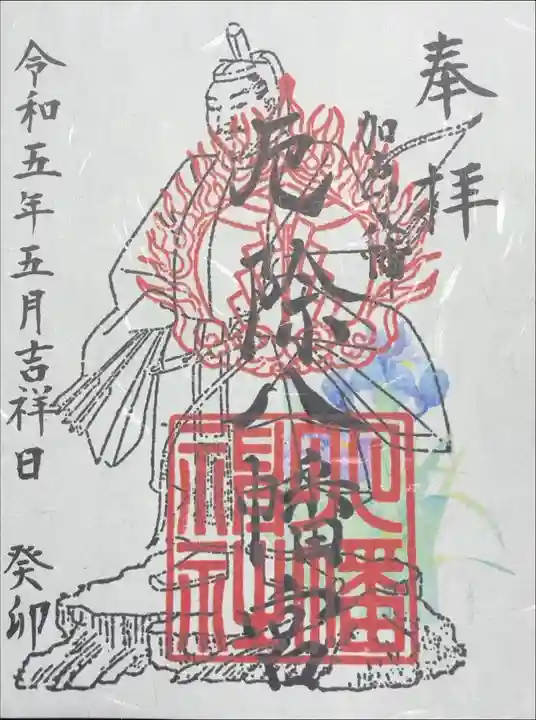 奉拝
厄除八幡宮
八幡神社
令和五年五月吉祥日 癸卯